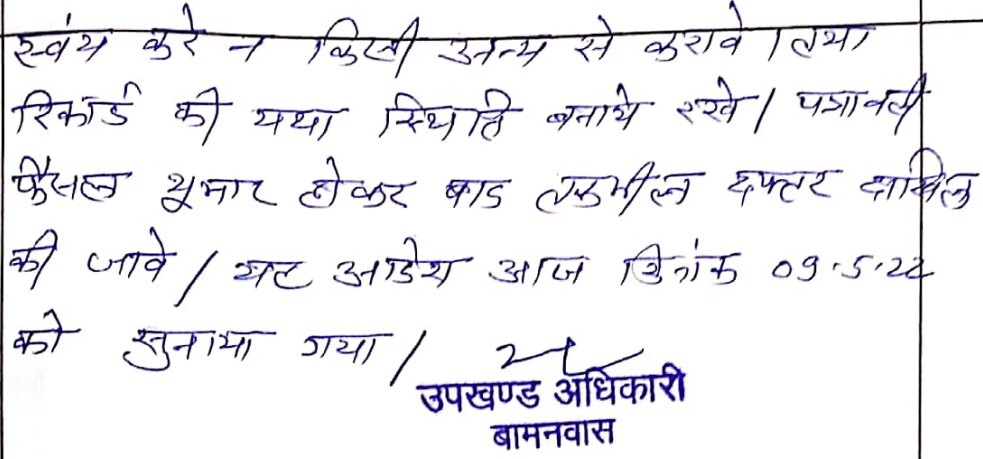 स्वंय करे न किसी अन्य से करावे । तथा
रिकॉर्ड की यथा स्थिति बनाये रखे । पत्रावली
फैसल शूमार होकर बाद तकमील दफ्तर दाखिल
की जावे । यह आदेश आज दिनांक 09.5.22
को सुनाया गया ।
उपखण्ड अधिकारी
बामनवास